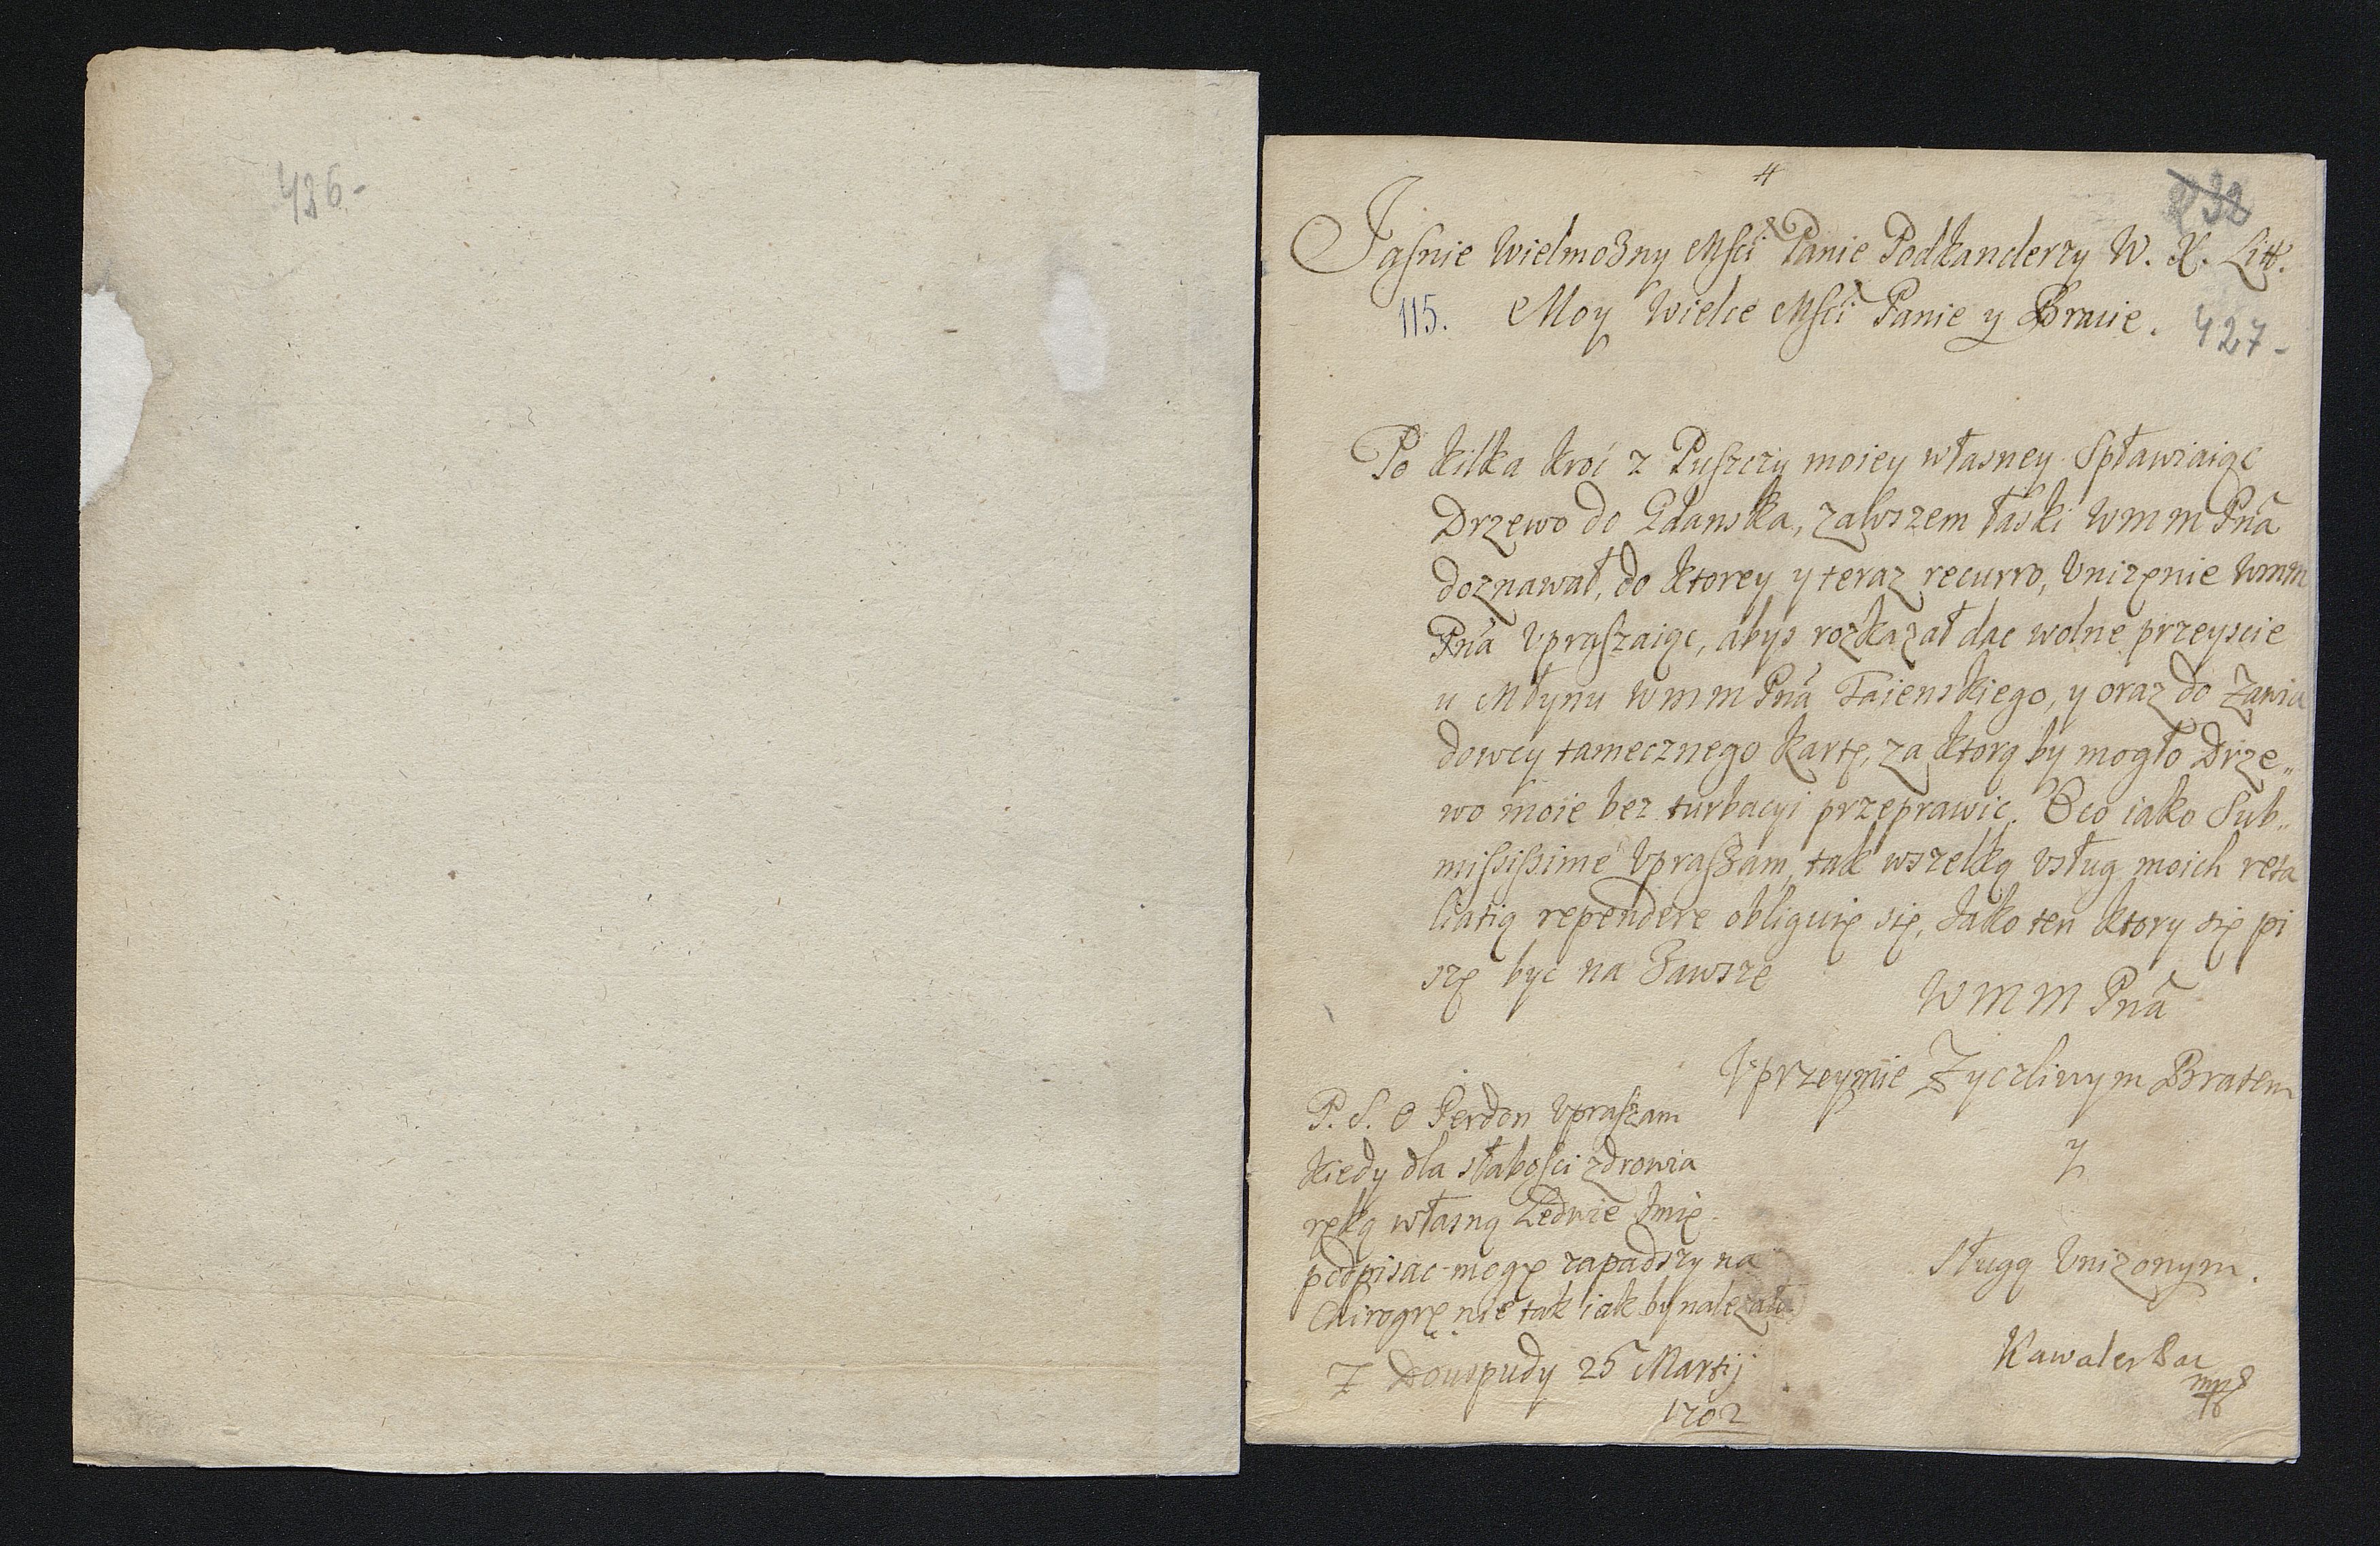 426-
#
Jaśnie Wielmożny Mści Panie Podkanclerzy W. X. Litt.
115. Moy Wielce Mści Panie y Bracie.
427-
Po kilka kroć z Puszczy moiey własney Spławiaiąc
Drzewo do Gdanska, zawszem łaski WMM Pnã
doznawał, do ktorey y teraz recurro, Vniżenie WMM
Pnã Vpraszaiąc, abys rozkazał dac wolne przeyscie
u Młynu WMM Pnã Taienskiego, y oraz do Zawia
dowcy tamecznego kartę, za ktorą by mogło Drze„
wo moie bez turbacyi przeprawic. O co iako Sub„
missisime Vpraszam, tak wszelką Vsług moich reta
liatią rependere obliguię się, Jako ten ktory się pi
szę byc na Zawsze
WMM Pnã
Vprzeymie Zyczliwym Bratem
y
Sługą Vnizonym.
Kawaler Pac
mpp
P. S. O Perdon Vpraszam
kiedy dla słabości zdrowia
ręką własną Ledwie Imię
podpisac mogę zapadszy na
Chirogrę nie tak iak by nalezało.
Z Dowspudy 25 Martij
1702